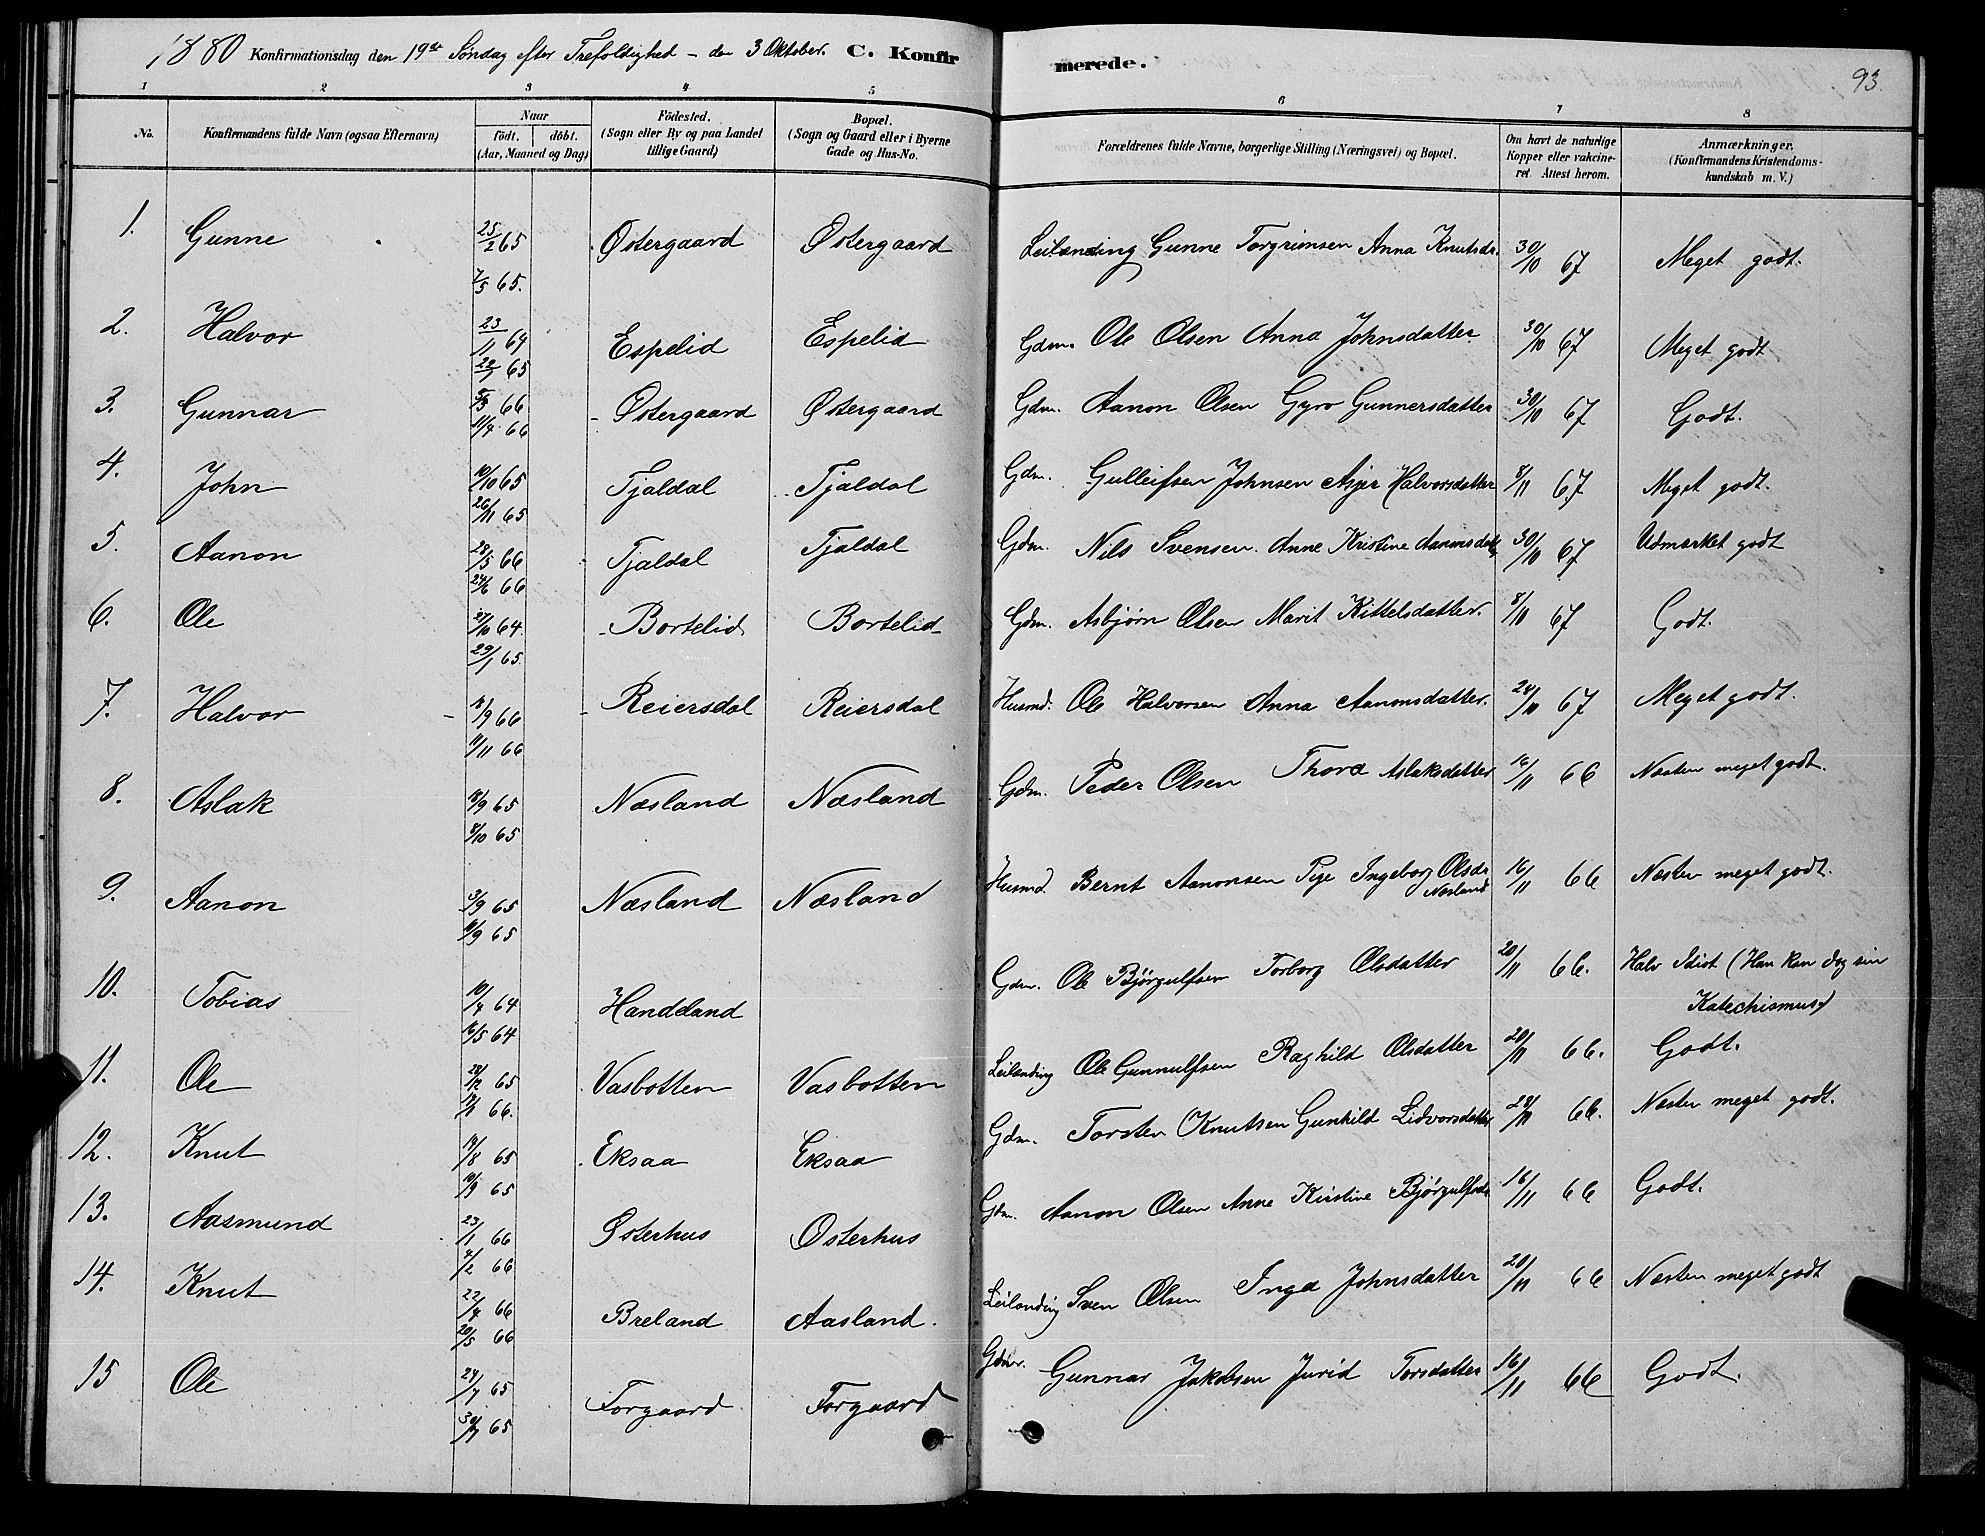 1880 Konfirmationsdag den 19de Søndag efter Trefoldighed - den 3 Oktober. C. Konfirmerede. 93.
1 2 3 4 5 6 7 8
No. Konfirmandens fulde Navn (ogsaa Efternavn) Naar födt. döbt. (Aar, Maaned og Dag) Födested. (Sogn eller By og paa Landet tillige Gaard) Bopæl. (Sogn og Gaard eller i Byerne Gade og Hus-No. Forældrenes fulde Navne, borgerlige Stilling (Næringsvei) og Bopæl. Om havt de naturlige Kopper eller vakcineret. Attest herom. Anmærkninger. (Konfirmandens Kristendomskundskab m. V.)
1. Gunne 25/2 65 Østergaard Østergaard Leilænding Gunne Torgrimsen Anna Knutsdr. 30/10 67 Meget godt.
7/5 65.
2. Halvor 23/11 64 Espelid Espelid Gdm. Ole Olsen Anna Johnsdatter 30/10 67 Meget godt
22/1 65
3. Gunnar 5/3 66 Østergaard Østergaard Gdm. Aanon Olsen Gyro Gunnersdatter 30/10 67 Godt.
11/4 66
4. John 10/10 65 Tjaldal Tjaldal Gdm. Gulleifsen Johnsen Asjer Halvorsdatter 8/11 67 Meget godt.
26/11 65
5. Aanon 28/5 66 Tjaldal Tjaldal Gdm. Nils Svensen. Anne Kristine Aanonsdatter 30/10 67 Udmærket godt
24/6 66
6. Ole 27/10 64 Bortelid Bortelid Gdm. Asbjørn Olsen Marit Kittelsdatter. 8/11 67 Godt.
29/1 65.
7. Halvor 18/9 66 Reiersdal Reiersdal Husmd. Ole Halvorsen Anna Aanonsdatter. 24/10 67 Meget godt.
11/11 66
8. Aslak 18/9 65 Næsland Næsland Gdm. Peder Olsen Thora Aslaksdatter 16/11 66 Næsten meget godt.
8/10 65
9. Aanon 3/9 65 Næsland Næsland Husmd. Bernt Aanonsen Pige Ingeborg Olsdr Næsland 16/11 66 Næsten meget godt.
11/9 65
10. Tobias 10/4 64 Handeland Gdm. Ole Bjørgulfsen Torborg Olsdatter 20/11 66. Halv Idiot (Han kan dog sin
16/5 64 Katechismus)
11. Ole 28/12 65 Vasbotten Vasbotten Leilænding Ole Gunnulfsen Raghild Olsdatter 20/11 66. Godt.
66.
12. Knut 19/8 65 Eksaa Eksaa Gdm. Torsten Knutsen Gunhild Lidvorsdatter 28/11 66. Næsten meget godt.
10/9 65
13. Aasmund 23/1 66 Osterhus Osterhus Gdm. Aanon Olsen Anne Kirstine Bjørgulfsdr 16/11 66 Godt.
4/2 66
14. Knut 22/4 66 Breland Aasland. Leilænding Sven Olsen Inga Johnsdatter 20/11 66 Næsten meget godt
20/5 66
15 Ole 24/7 65 Forgaard Forgaard Gdm. Gunnar Jakobsen Jurid Torsdatter 16/11 66 Godt.
30/7 65